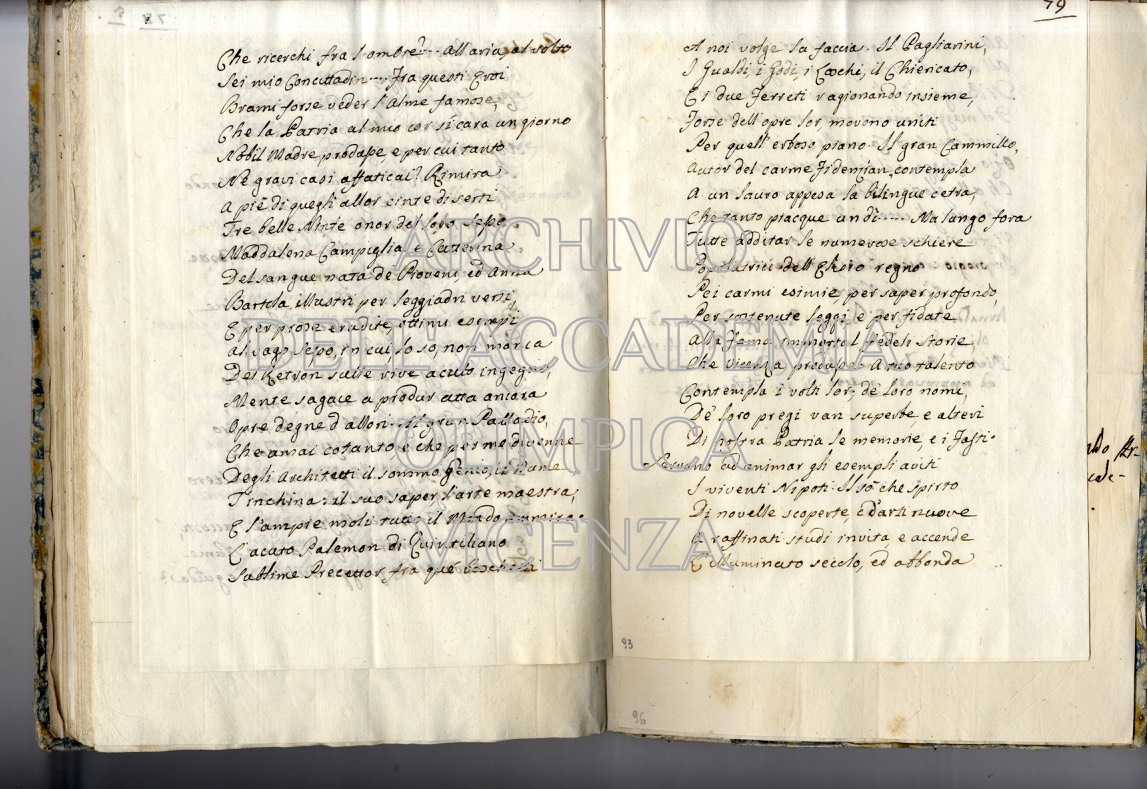 78
Che ricerchi fra l'ombre? .... All'aria, al volto
Sei mio Concittadin .... Fra questi Eroi
Brami forse veder l'Alme famose,
Che la Patria al mio cor sì cara un giorno
Nobil Madre produsse, e per cui tanto
Ne' gravi casi affaticai? Rimira
A piè di quegli allor cinte di serti
Tre belle Ninfe onor del loro sesso
Maddalena Campiglia, e Catterina
Del sangue nata de' Pioveni ed Anna
Bartola illustri per leggiadri versi,
E per prose erudite, ottimi esempi
Al vago sesso, in cui lo so, non manca
Del Retron sulle rive acuto ingegno,
Mente sagace a produr atta ancora
Opre degne d'allori .... il gran Palladio,
Che amai cotanto e che per me divenne
Degli Architetti il sommo Genio,
T'inchina: il suo saper, l'arte maestra,
E l'ampie moli tutto il Mondo ammira.
L'acuto Palemon di Quintiliano
Sublime Precettor fra que'
79
A noi volge la faccia. Il Pagliarini,
I Gualdi, i Godi, i Zocchi, il Chiericato,
E i due Ferreti ragionando insieme,
Forse dell'opre lor, movono uniti
Per quell'erboso piano. Il gran Cammillo,
Autor del carme contempla
A un lauro appesa la bilingue cetra,
Che tanto piacque un dì .... Ma lungo fora
Tutte additar le numerose schiere
dell'Elisio regno
Pei carmi esimie, per saper profondo,
Per sostenute leggi e per fidate
Alla Fama immortal fedeli storie
Che Vicenza produsse. A tuo talento
Contempla i volti lor, de' loro nomi,
De' loro pregi van superbe, e alteri
Di nostra Patria le memorie, e i Fasti.
Servano ad animar gli esempli aviti
I viventi Nipoti. Il sò che Spirto
Di novelle scoperte, e d'arti nuove
A raffinati studi invita, e accende
L'illuminato secolo, ed abbonda
93
96
ARCHIVIO
DELL'ACCADEMIA
OLIMPICA
VICENZA